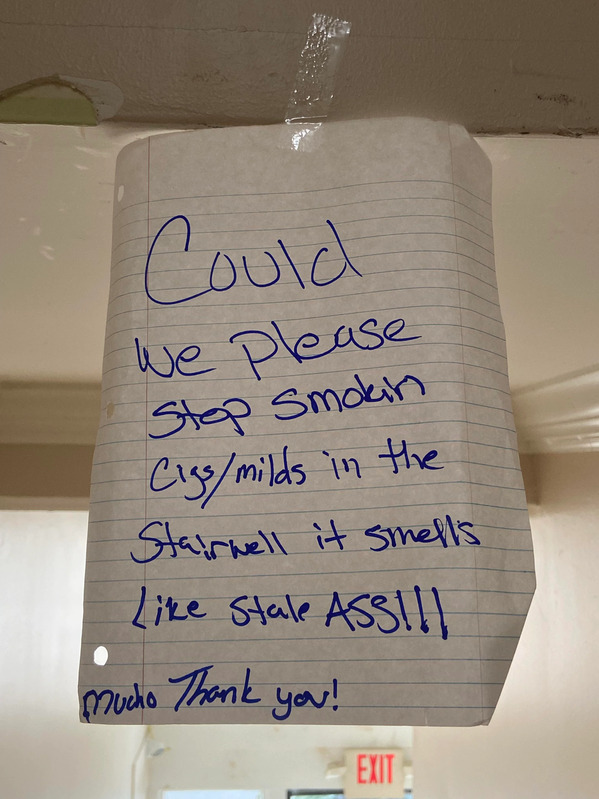 Could
we please
stop smokin
Cigs/milds in the
Stairwell it smells
Like stale ASS!!!
mucho Thank you!
EXIT